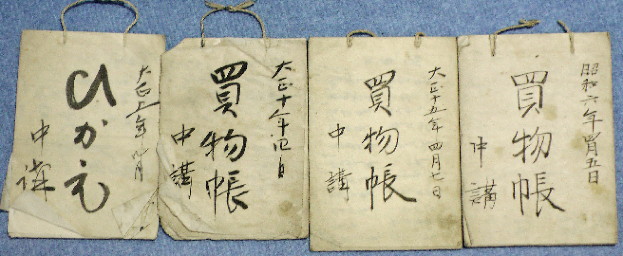 大正 年 月
ひかえ
中講
大正十年
買物帳
中講
大正十五年 四月七日
買物帳
中講
昭和六年四月五日
買物帳
中講